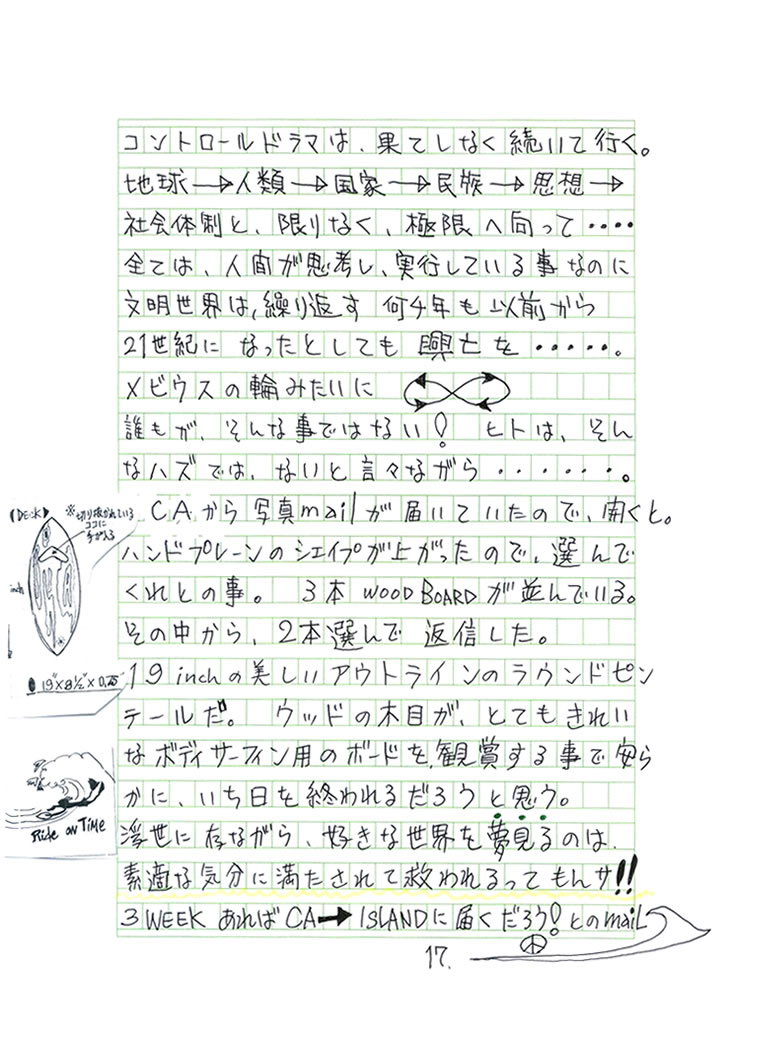 コントロールドラマは、果てしなく続いて行く。
地球→人類→国家→民族→思想→
社会体制と、限りなく、極限へ向って‥‥
全ては、人間が思考し、実行している事なのに
文明世界は、繰り返す 何千年も以前から
21世紀に なったとしても 興亡を ‥‥‥。
メビウスの輪みたいに
誰もが、そんな事ではない! ヒトは、そん
なハズでは、ないと言々ながら ・・・・・・・。
CAから写真mailが届いていたので、開くと。
ハンドプレーンのシェイプが上がったので、選んで
くれとの事。 3本 WOOD BOARD が並んでいる。
その中から、2本選んで 返信した。
19 inchの美しいアウトラインのラウンドピン
テールだ。 ウッドの木目が、とてもきれい
なボディサーフィン用のボードを、観賞する事で安ら
かに、いち日を終われるだろうと思う。
浮世に存ながら、好きな世界を夢見るのは、
素適な気分に満たされて救われるってもんサ!!
3 WEEK あればCA→ISLANDに届くだろう! とのmail
17.
(DECK)
※切り抜かれている
ココに
手が入る
inch
19"×8½"×0.75"
Ride on Time